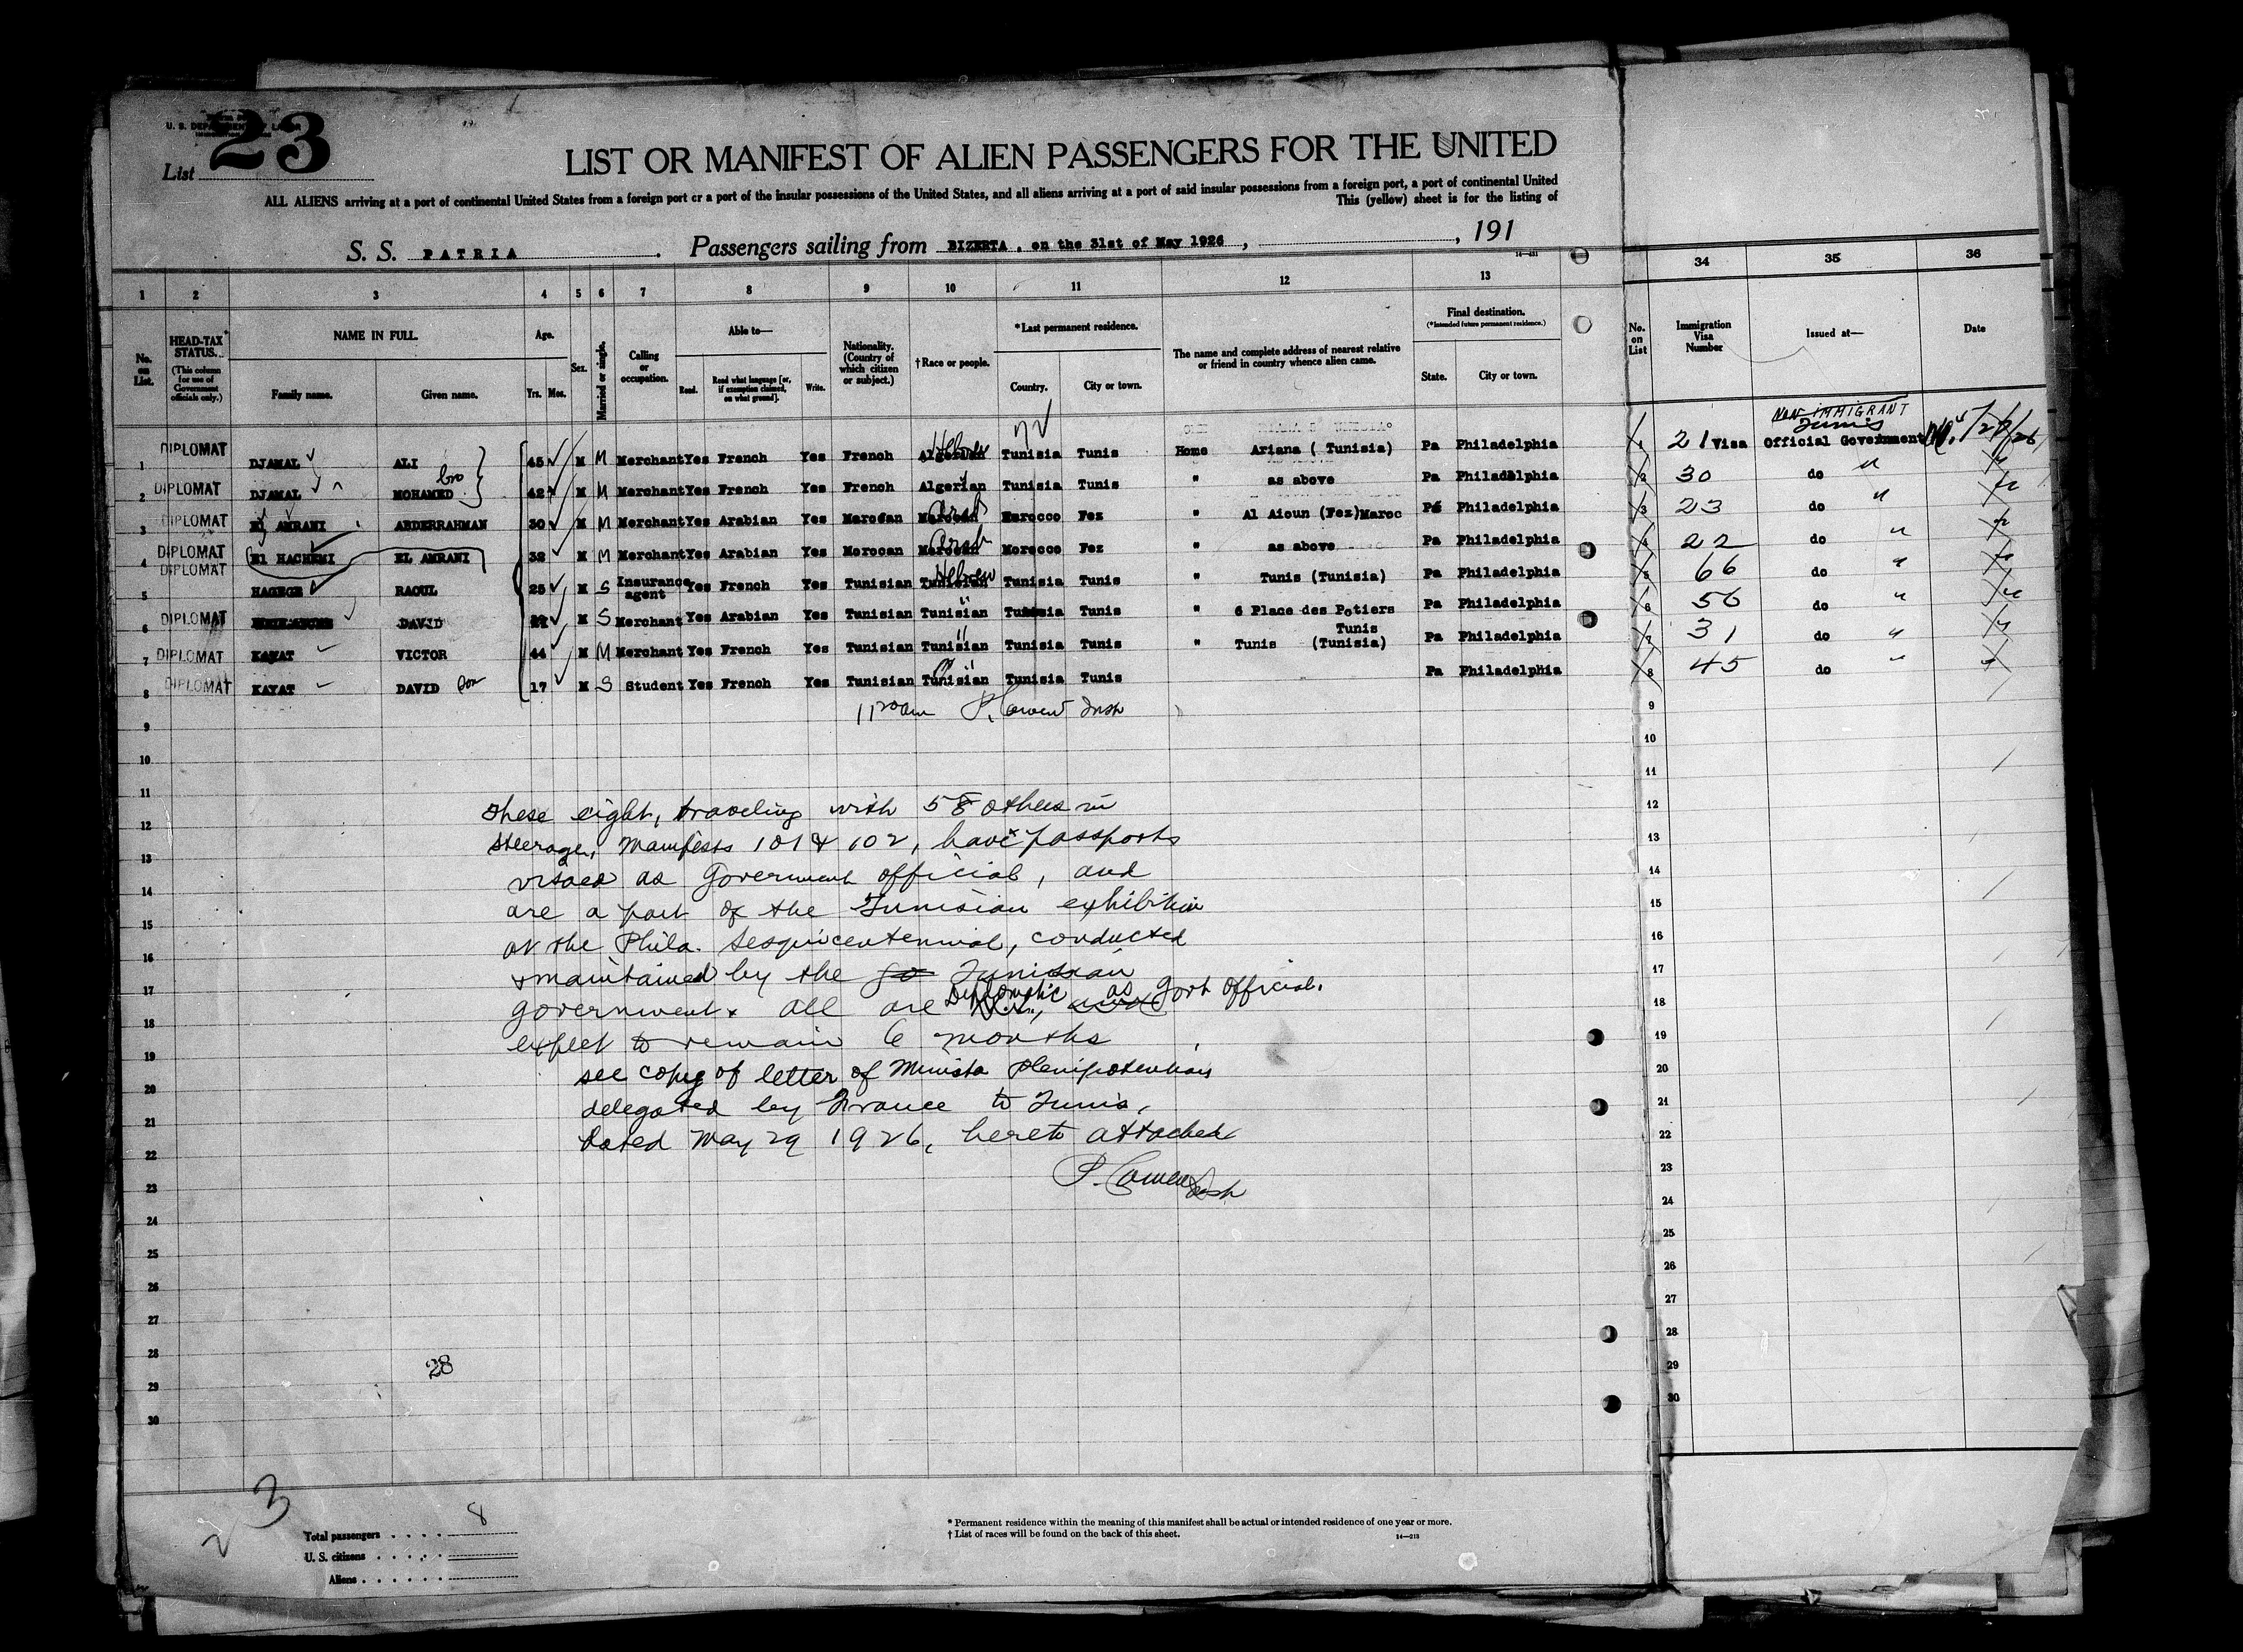 23
U. S. DEPARTMENT OF LABOR
List
LIST OR MANIFEST OF ALIEN PASSENGERS FOR THE UNITED
ALL ALIENS arriving at a port of continental United States from a foreign port or a port of the insular possessions of the United States, and all aliens arriving at a port of said insular possessions from a foreign port, a port of continental United
This (yellow) sheet is for the listing of
S. S. PATRIA. Passengers sailing from BIZERTA, on the 31st of May 1926, , 191
14—431
1 2 3 4 5 6 7 8 9 10 11 12 13 34 35 36
No. on List.
HEAD-TAX STATUS.*
(This column for use of Government officials only.)
NAME IN FULL.
Family name. Given name.
Age.
Yrs. Mos.
Sex.
Married or single.
Calling or occupation.
Able to—
Read. Read what language [or, if exemption claimed, on what ground]. Write.
Nationality. (Country of which citizen or subject.)
†Race or people.
*Last permanent residence.
Country. City or town.
The name and complete address of nearest relative or friend in country whence alien came.
Final destination.
(*Intended future permanent residence.)
State. City or town.
No. on List
Immigration Visa Number
Issued at—
Date
NON IMMIGRANT
Tunis
1 DIPLOMAT DJAMAL ALI 45 M M Merchant Yes French Yes French Algerian Hebrew Tunisia Tunis Home Ariana ( Tunisia) Pa Philadelphia 1 21 Visa Official Government
2 DIPLOMAT DJAMAL MOHAMED bro 42 M M Merchant Yes French Yes French Algerian " Tunisia Tunis " as above Pa Philadelphia 2 30 do "
3 DIPLOMAT El AMRANI ABDERRAHMAN 30 M M Merchant Yes Arabian Yes Marocan Marocan Arab Marocco Fez " Al Aioun (Fez)Maroc Pa Philadelphia 3 23 do "
4 DIPLOMAT El HACHEMI EL AMRANI 32 M M Merchant Yes Arabian Yes Morocan Marocan Arab Morocco Fez " as above Pa Philadelphia 4 22 do "
5 DIPLOMAT HAGEGE RAOUL 25 M S Insurance agent Yes French Yes Tunisian Tunisian Hebrew Tunisia Tunis " Tunis (Tunisia) Pa Philadelphia 5 66 do "
6 DIPLOMAT DAVID M S Merchant Yes Arabian Yes Tunisian Tunisian " Tunisia Tunis " 6 Place des Potiers Tunis Pa Philadelphia 6 56 do "
7 DIPLOMAT KAYAT VICTOR 44 M M Merchant Yes French Yes Tunisian Tunisian " Tunisia Tunis " Tunis (Tunisia) Pa Philadelphia 7 31 do "
8 DIPLOMAT KAYAT DAVID son 17 M S Student Yes French Yes Tunisian Tunisian " Tunisia Tunis Pa Philadelphia 8 45 do "
9 11 20 am P. Cowen Insp 9
10 10
11 11
12 12
13 13
14 14
15 15
16 16
17 17
18 18
19 19
20 20
21 21
22 22
23 23
24 24
25 25
26 26
27 27
28 28
29 29
30 30
These eight, traveling with 58 others in
steerage, manifests 101 & 102, have passports
visaed as Government official, and
are a part of the Tunisian exhibition
at the Phila. Sesquicentennial, conducted
& maintained by the go Tunisian
government. All are Diplomatic as Govt official.
expect to remain 6 months
see copy of letter of Minister Plenipotentiary
delegated by France to Tunis,
dated May 29 1926, hereto attached
P. Cowen Insp
28
23
Total passengers . . . . 8
U. S. citizens . . . . .
Aliens . . . . . .
* Permanent residence within the meaning of this manifest shall be actual or intended residence of one year or more.
† List of races will be found on the back of this sheet.
14—213